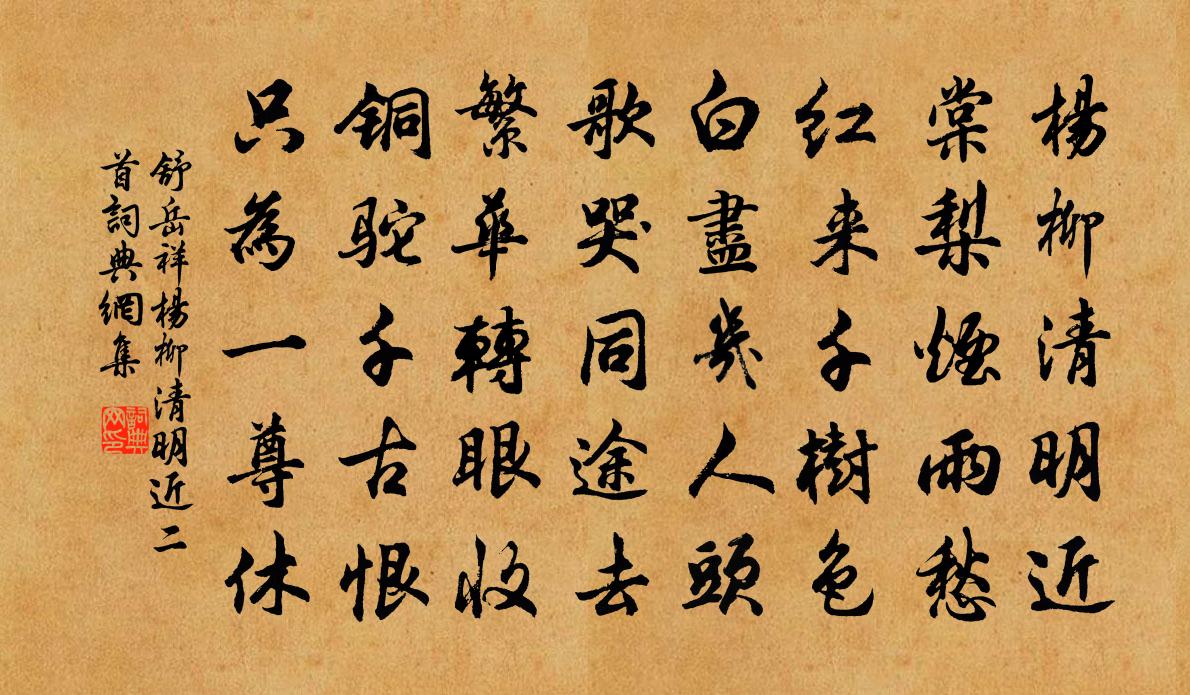 楊柳清明近
棠梨煙雨愁
红来千樹色
白盡幾人頭
歌哭同途去
繁華轉眼收
銅駝千古恨
只為一尊休
舒岳祥楊柳清明近二
首詞典網集
詞典網印